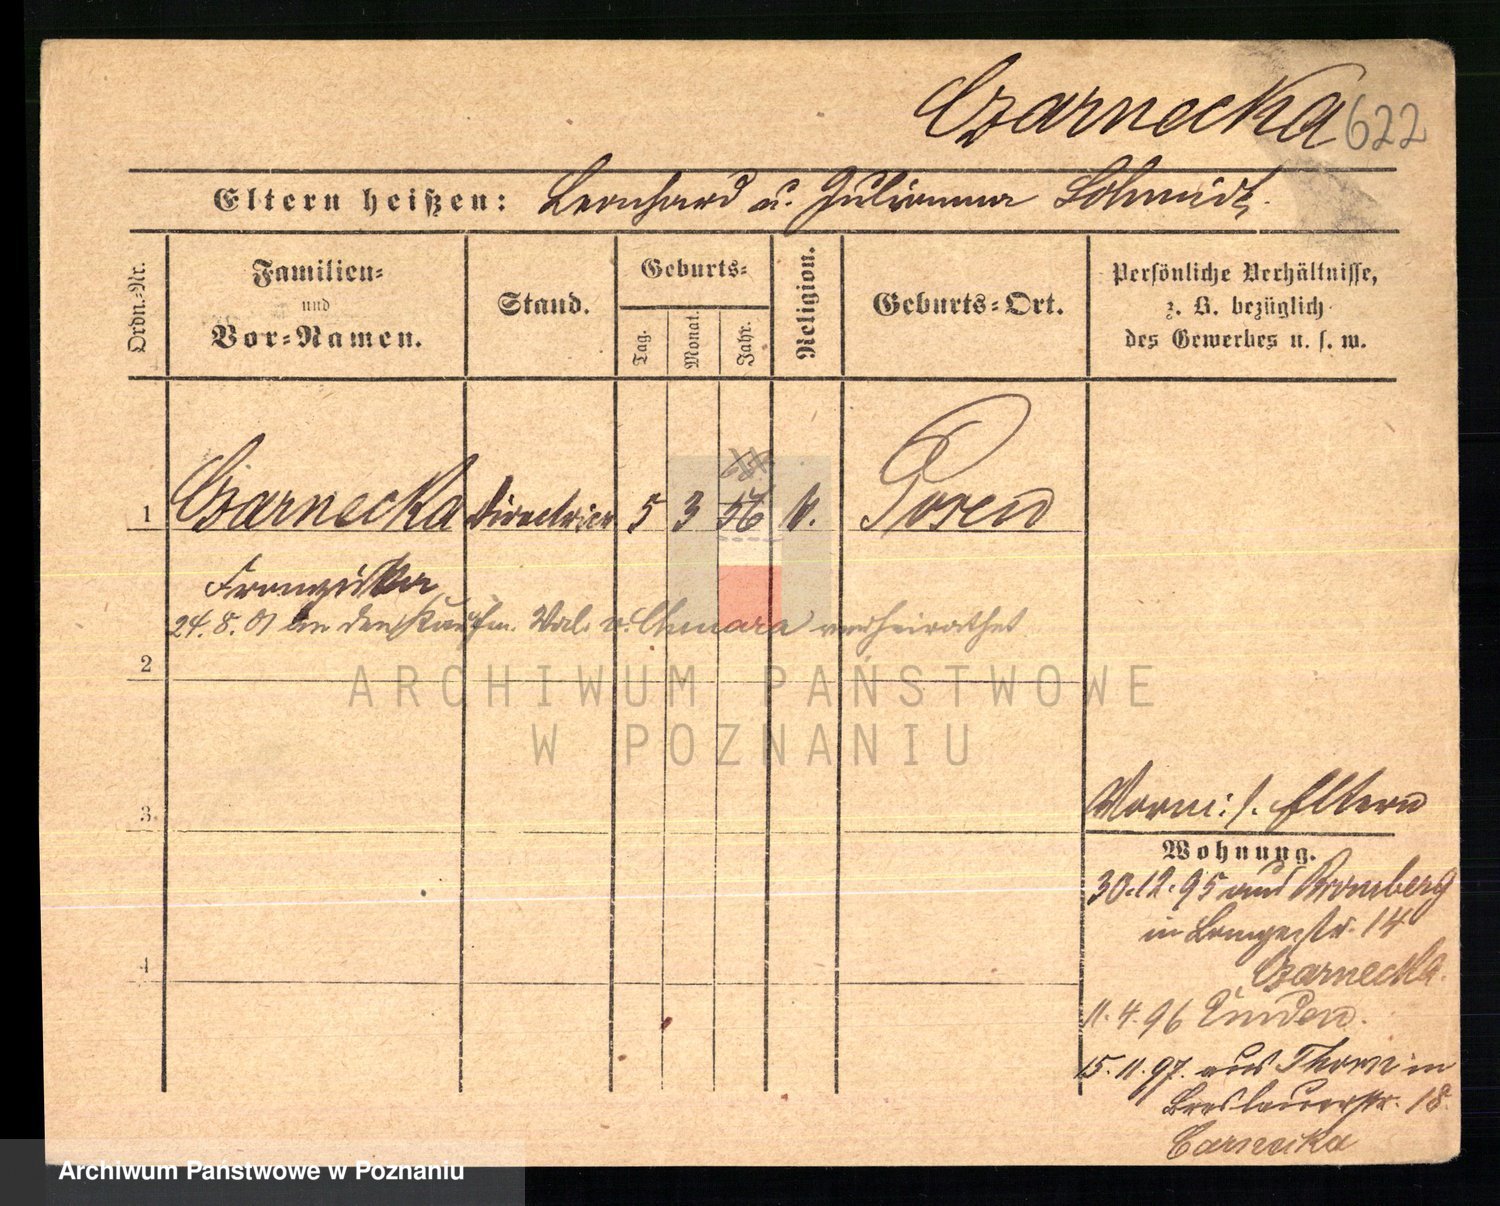 Czarnecka 622
Eltern heißen: Bernhard u. Julianna Schmidt.
Ordn.-Nr.
Familien-
und
Vor-Namen.
Stand.
Geburts-
Tag.
Monat.
Jahr.
Religion.
Geburts-Ort.
Persönliche Verhältnisse,
z. B. bezüglich
des Gewerbes u. s. w.
1 Czarnecka Directrice 5 3 56 k. Posen
Franziska
24. 8. 01 an den Kaufm. Val. v. Chmara verheirathet
2
3.
4
Vorm: s. Eltern
Wohnung.
30.12.95 aus Bromberg
in Langestr. 14
Czarnecka.
11.4.96
15.11.97. aus Thorn in
Breslauerstr. 18.
Carnecka
ARCHIWUM PAŃSTWOWE
W POZNANIU
Archiwum Państwowe w Poznaniu